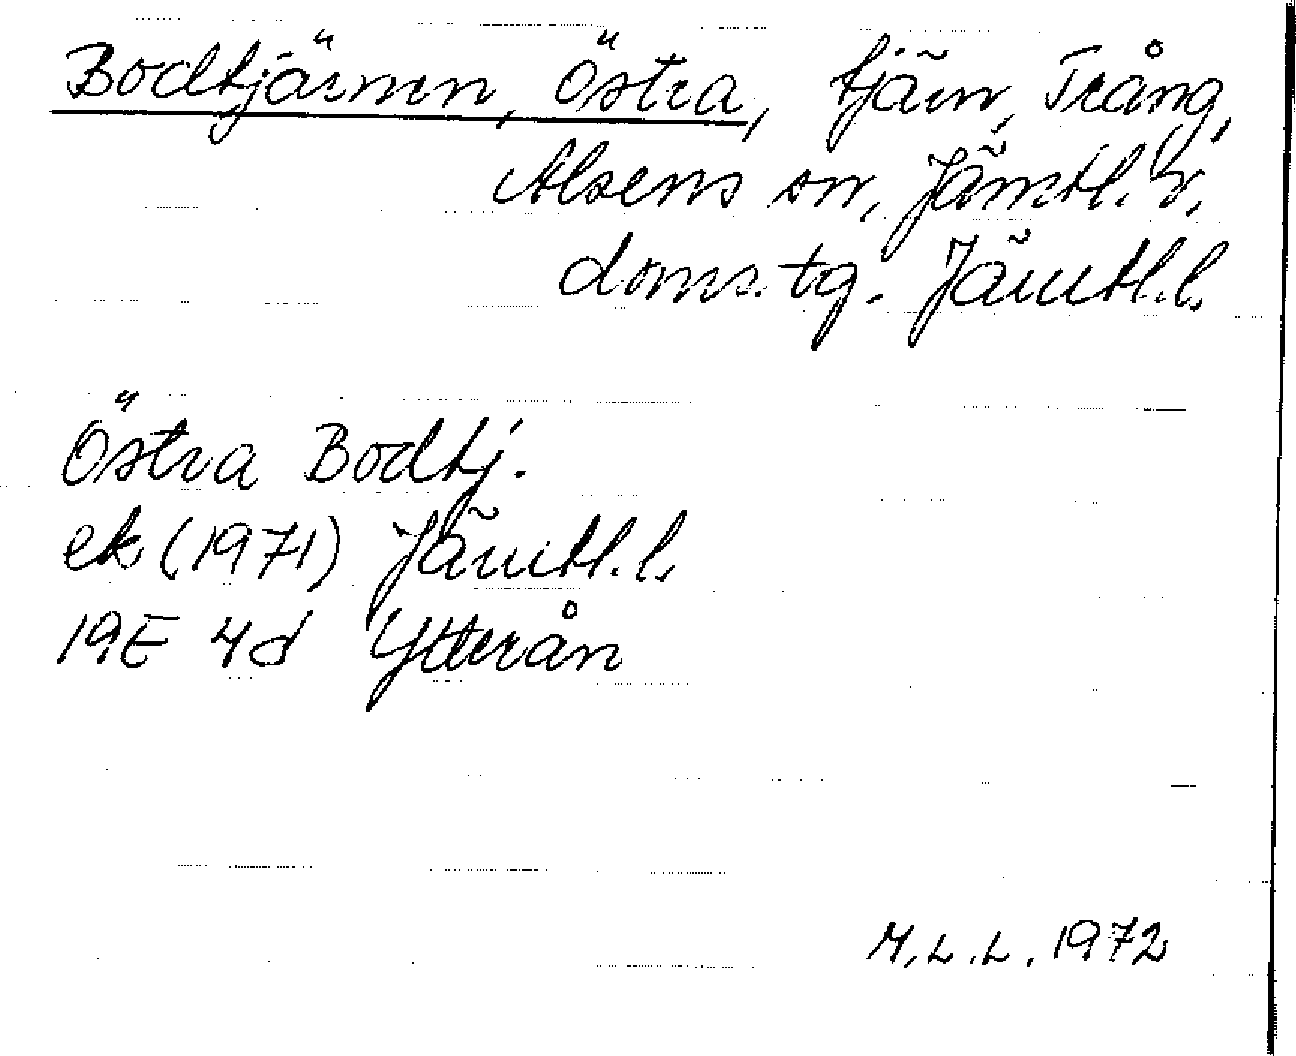 Bodtjärnen, Östra, tjärn, Trång,
Alsens sn, Jämtl. v.
doms. tg. Jämtl. l.
Östra Bodtj.
ek (1971) Jämtl. l.
19E 4d Ytterån
M.L.L. 1972